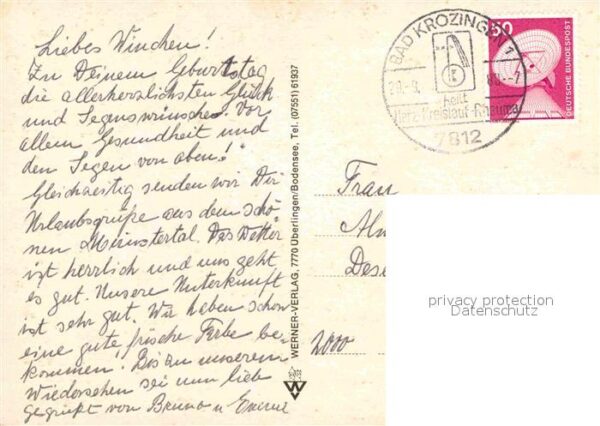 Liebes Winchen!
Zu Deinem Geburtstag
die allerherzlichsten Glück
und Segenswünsche. Vor
allem Gesundheit und
den Segen von oben!
Gleichzeitig senden wir Dir
Urlaubsgrüße aus dem schö-
nen Münstertal. Das Wetter
ist herrlich und uns geht
es gut. Unsere Unterkunft
ist sehr gut. Wir haben schon
eine gute frische Farbe be-
kommen. Bis zu unserem
Wiedersehen sei nun lieb
gegrüßt von Bruno u
WERNER-VERLAG, 7770 Überlingen/Bodensee, Tel. (07551) 61937
BAD KROZINGEN 1
heilt
Herz-Kreislauf-Rheuma
7812
50
DEUTSCHE BUNDESPOST
Frau
2000
privacy protection
Datenschutz